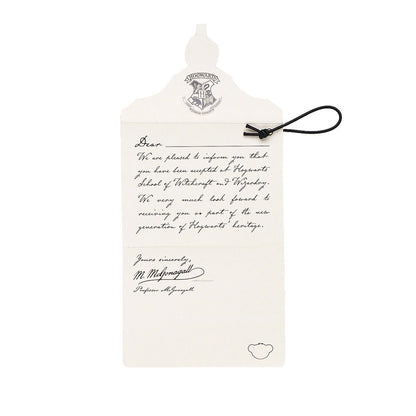 HOGWARTS
Dear
We are pleased to inform you that
you have been accepted at Hogwarts
School of Witchcraft and Wizardry.
We very much look foward to
receiving you as part of the new
generation of Hogwarts' heritage.
Yours sincerely,
M. McGonagall
Professor McGonagall